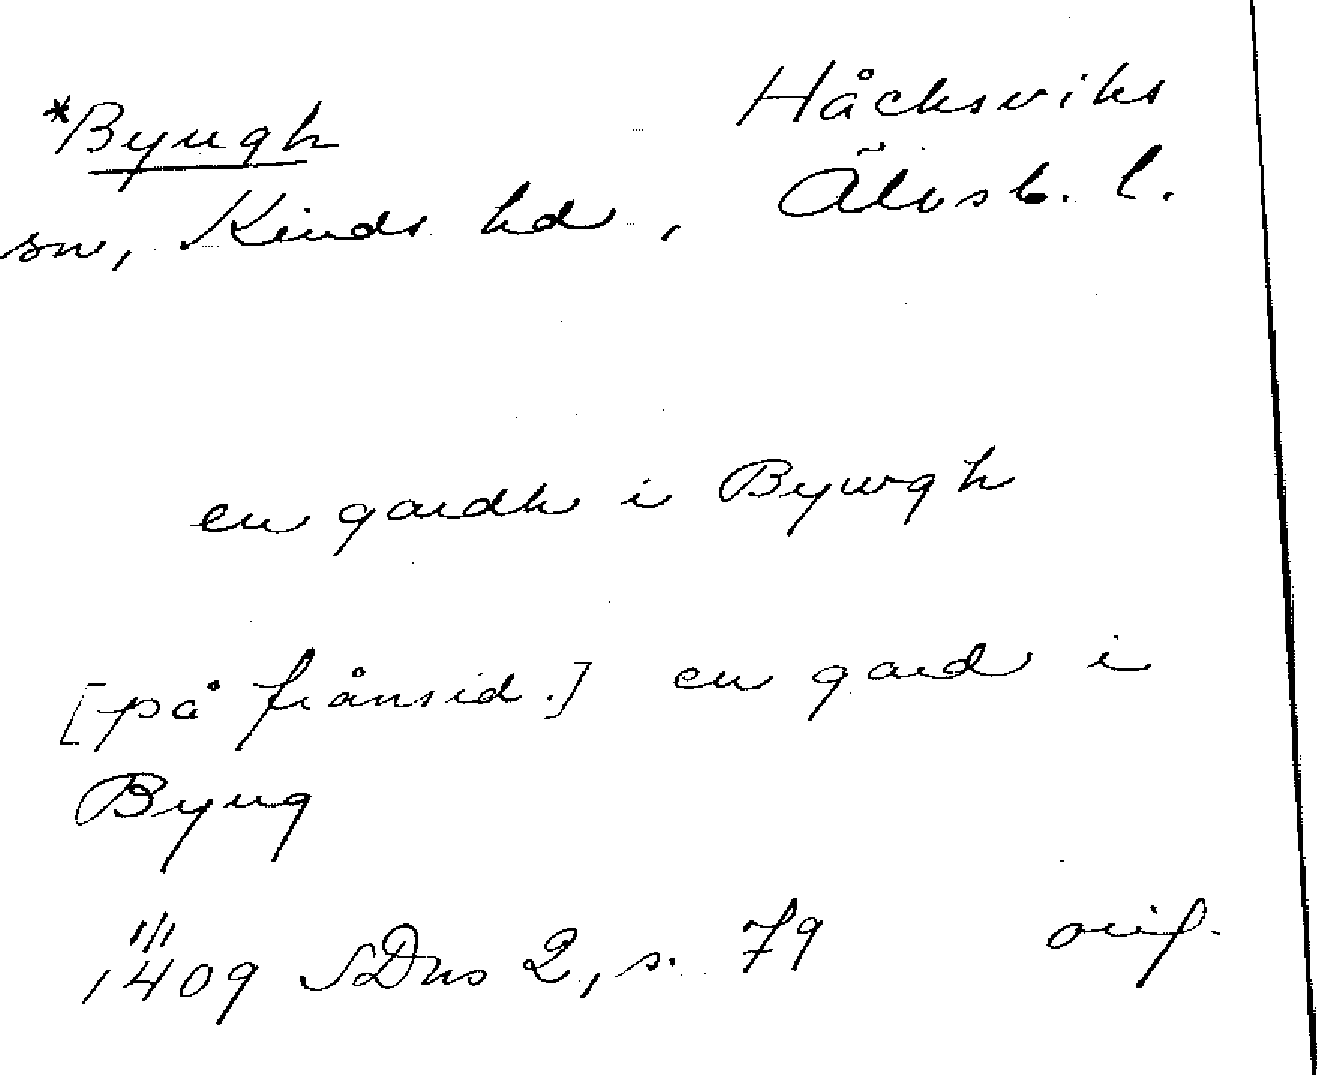 *Byugh Håcksviks
sn, Kinds hd, Älvsb. l.
en gardh i Bywgh
[på frånsid.] en gard i
Byug
1/1
1409 SDns 2, s. 79 orig.